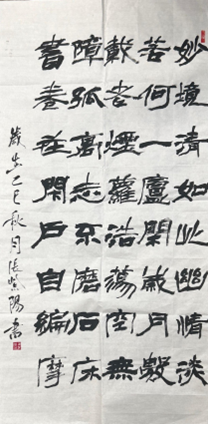 妙境清如此幽情淡
若何一廬閑歲月數
載老煙蘿浩蕩空無
障孤高志不磨石床
書卷在閉戶自編摩
歲在乙巳秋月張紫陽書